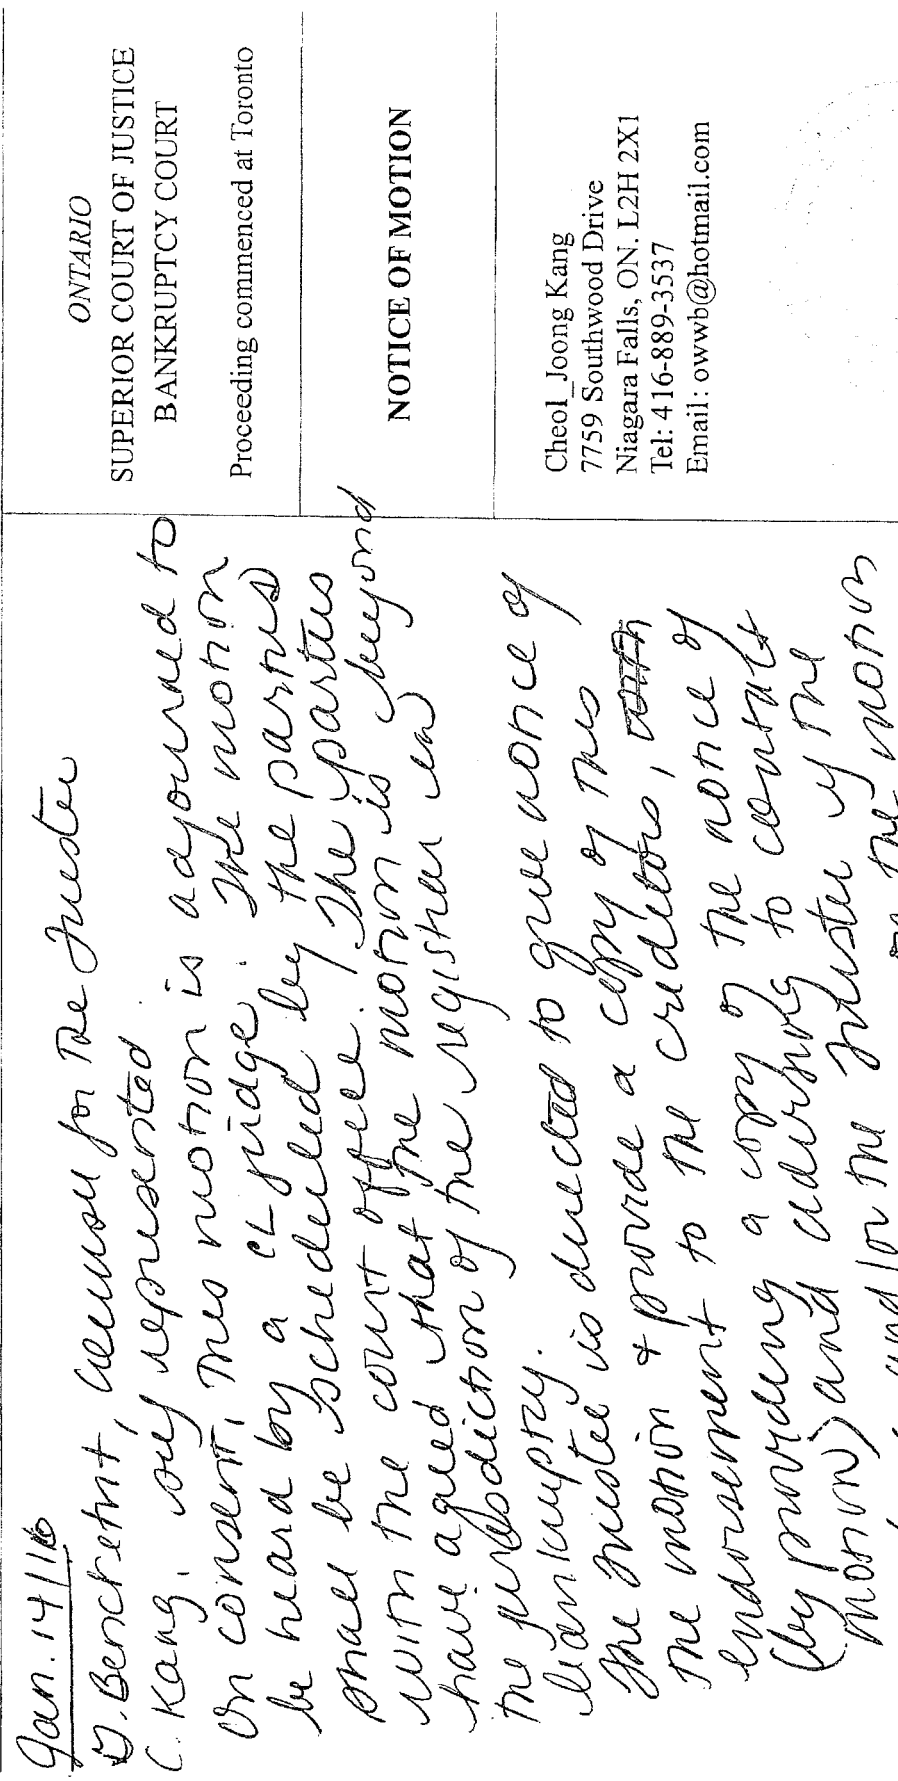 Jan. 14/16
D. Benchetrit, counsel for the Trustee
C. Kang, self represented.
On consent, this motion is adjourned to
be heard by a CL judge. The motion
shall be scheduled by the parties
with the court office. The parties
have agreed that the motion is beyond
the jurisdiction of the registrar in
bankruptcy.
The trustee is directed to give notice of
the motion + provide a copy of this
endorsement to the creditors,
(by providing a copy of the notice of
motion) and advising to consult
and/or the trustee if the
the motion
ONTARIO
SUPERIOR COURT OF JUSTICE
BANKRUPTCY COURT
Proceeding commenced at Toronto
NOTICE OF MOTION
Cheol_Joong Kang
7759 Southwood Drive
Niagara Falls, ON. L2H 2X1
Tel: 416-889-3537
Email: owwb@hotmail.com